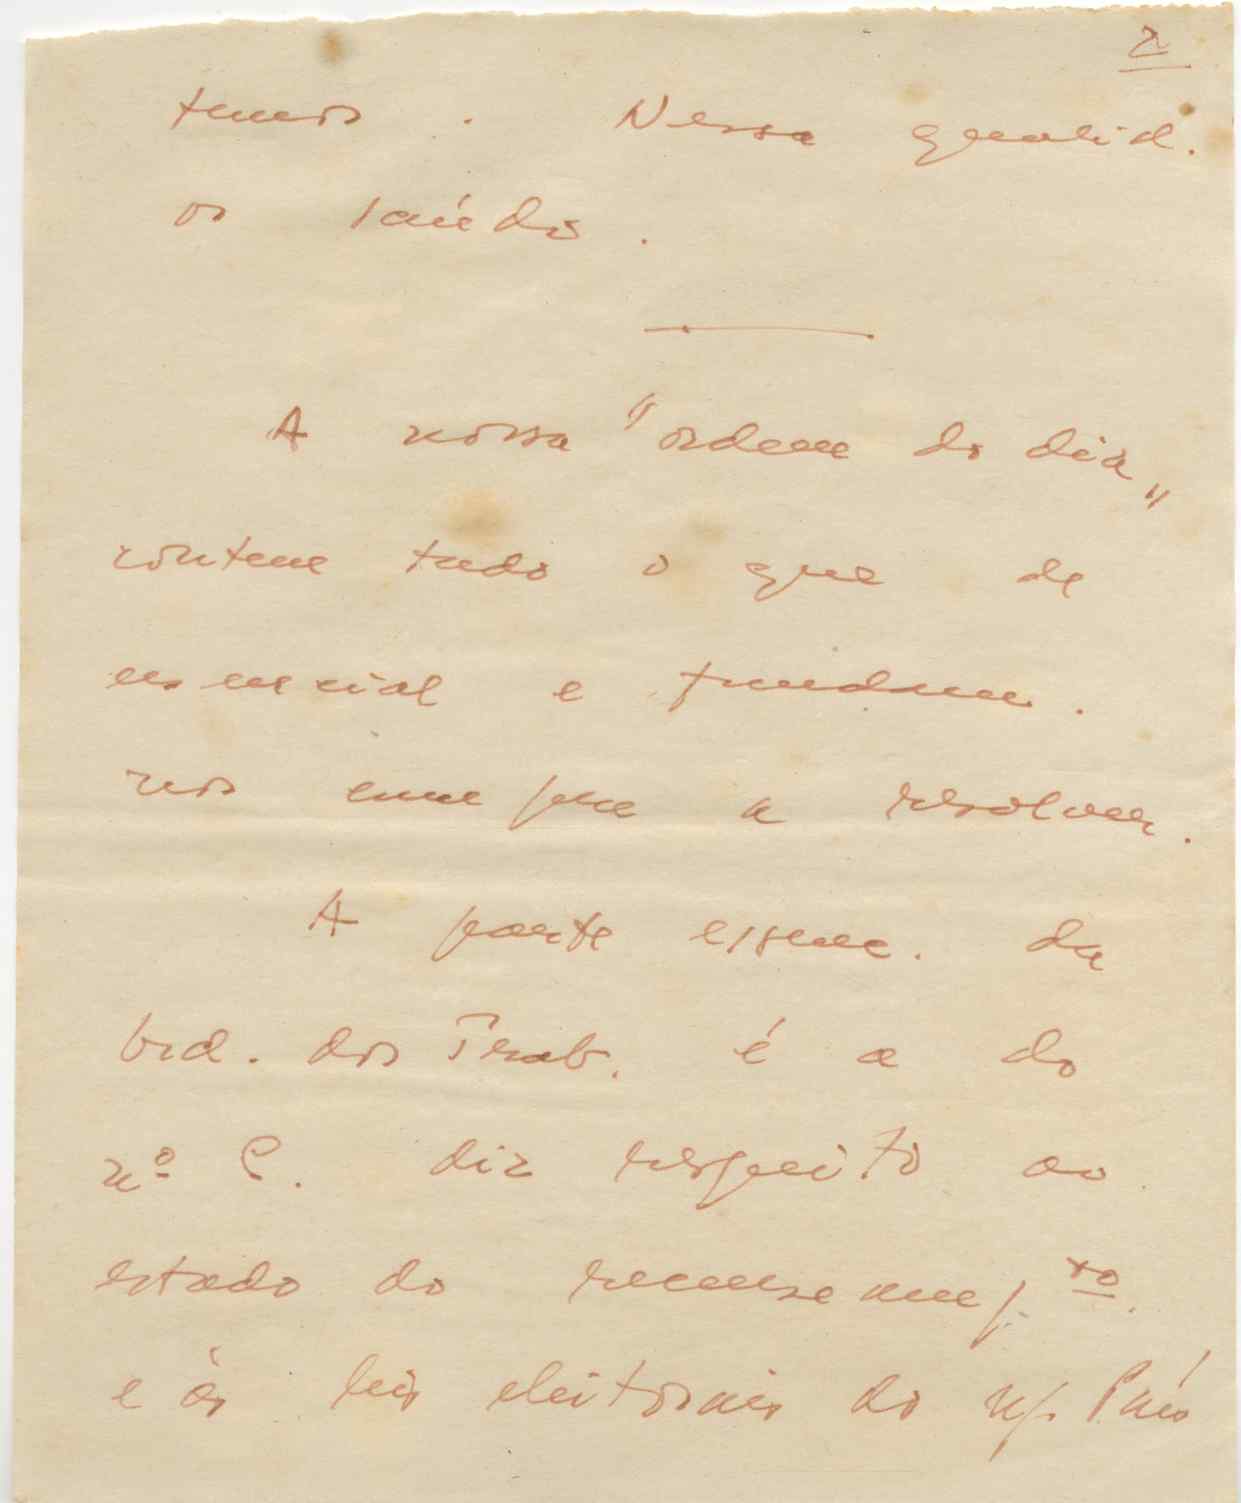 2
temos. Nessa qualid.
os saúdo.
A nossa "ordem do dia"
contem tudo o que de
essencial e fundam.
nos cumpre a resolver.
A parte essenc. da
Ord. dos Trab. é a do
nº C. diz respeito ao
estado do recenseam.
e às leis eleitorais do n/. País